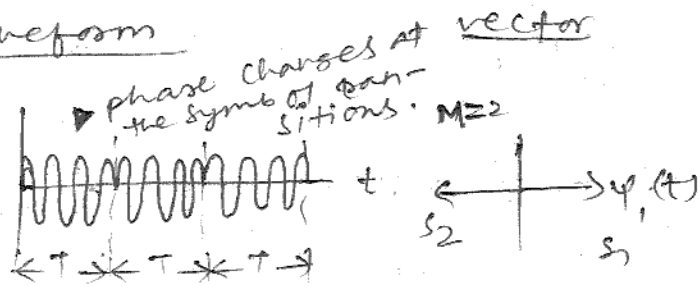 veform vector
phase changes at
the symbol tran-
sitions.
M=2
t
ψ₁(t)
S₂ S₁
T T T